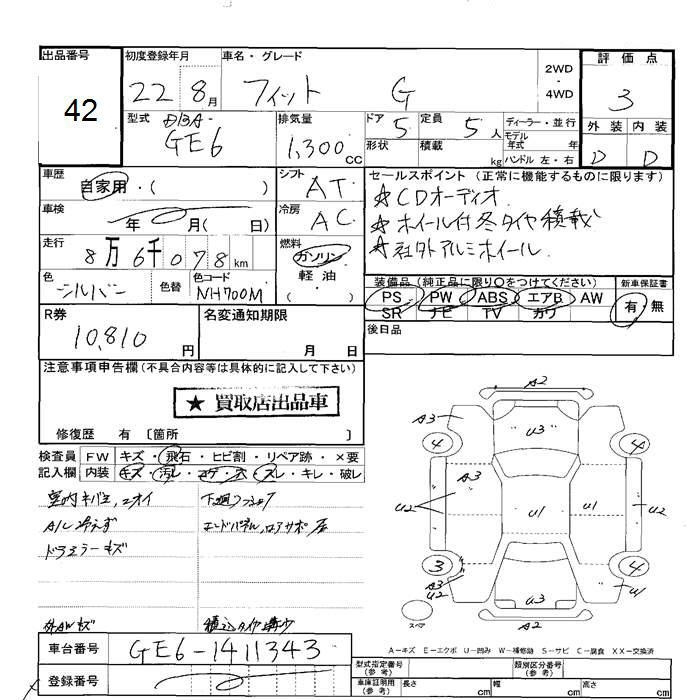 出品番号 初度登録年月 車名・グレード 2WD・4WD 評価点
42 22 8月 フィット G 3
型式 DBA- GE6 排気量 1,300cc ドア 5 定員 5人 ディーラー・並行
形状 積載 kg モデル年式 年 ハンドル 左・右
外装 内装
D D
車歴 自家用・( )
シフト AT
セールスポイント (正常に機能するものに限ります)
☆CDオーディオ
☆ホイール付冬タイヤ積載
☆社外アルミホイール
車検 年 月( 日)
冷房 AC
走行 8万6千078km
燃料 ガソリン 軽油 ( )
色 シルバー 色替 色コード NH700M
装備品 (純正品に限り〇をつけてください) 新車保証書
PS PW ABS エアB AW 有・無
SR ナビ TV カワ
R券 10,810円
名変通知期限 月 日
後日品
注意事項申告欄(不具合内容等は具体的に記入して下さい)
★ 買取店出品車
修復歴 有 〔箇所 〕
検査員記入欄 FW キズ・飛石・ヒビ割・リペア跡・×要
内装 キズ・汚レ・コゲ・穴・スレ・キレ・破レ
A/C冷えず
ドアミラーキズ
A2
A3 4 U3 4
A3
U2 U1 U1 U2
3 A3 U2 4 U1
U3
スペア A2
A-キズ E-エクボ U-凹み W-補修跡 S-サビ C-腐食 XX-交換済
車台番号 GE6-1411343
登録番号(参考)
型式指定番号(参考) 類別区分番号(参考)
車庫証明用(参考) 長さ cm 幅 cm 高さ cm